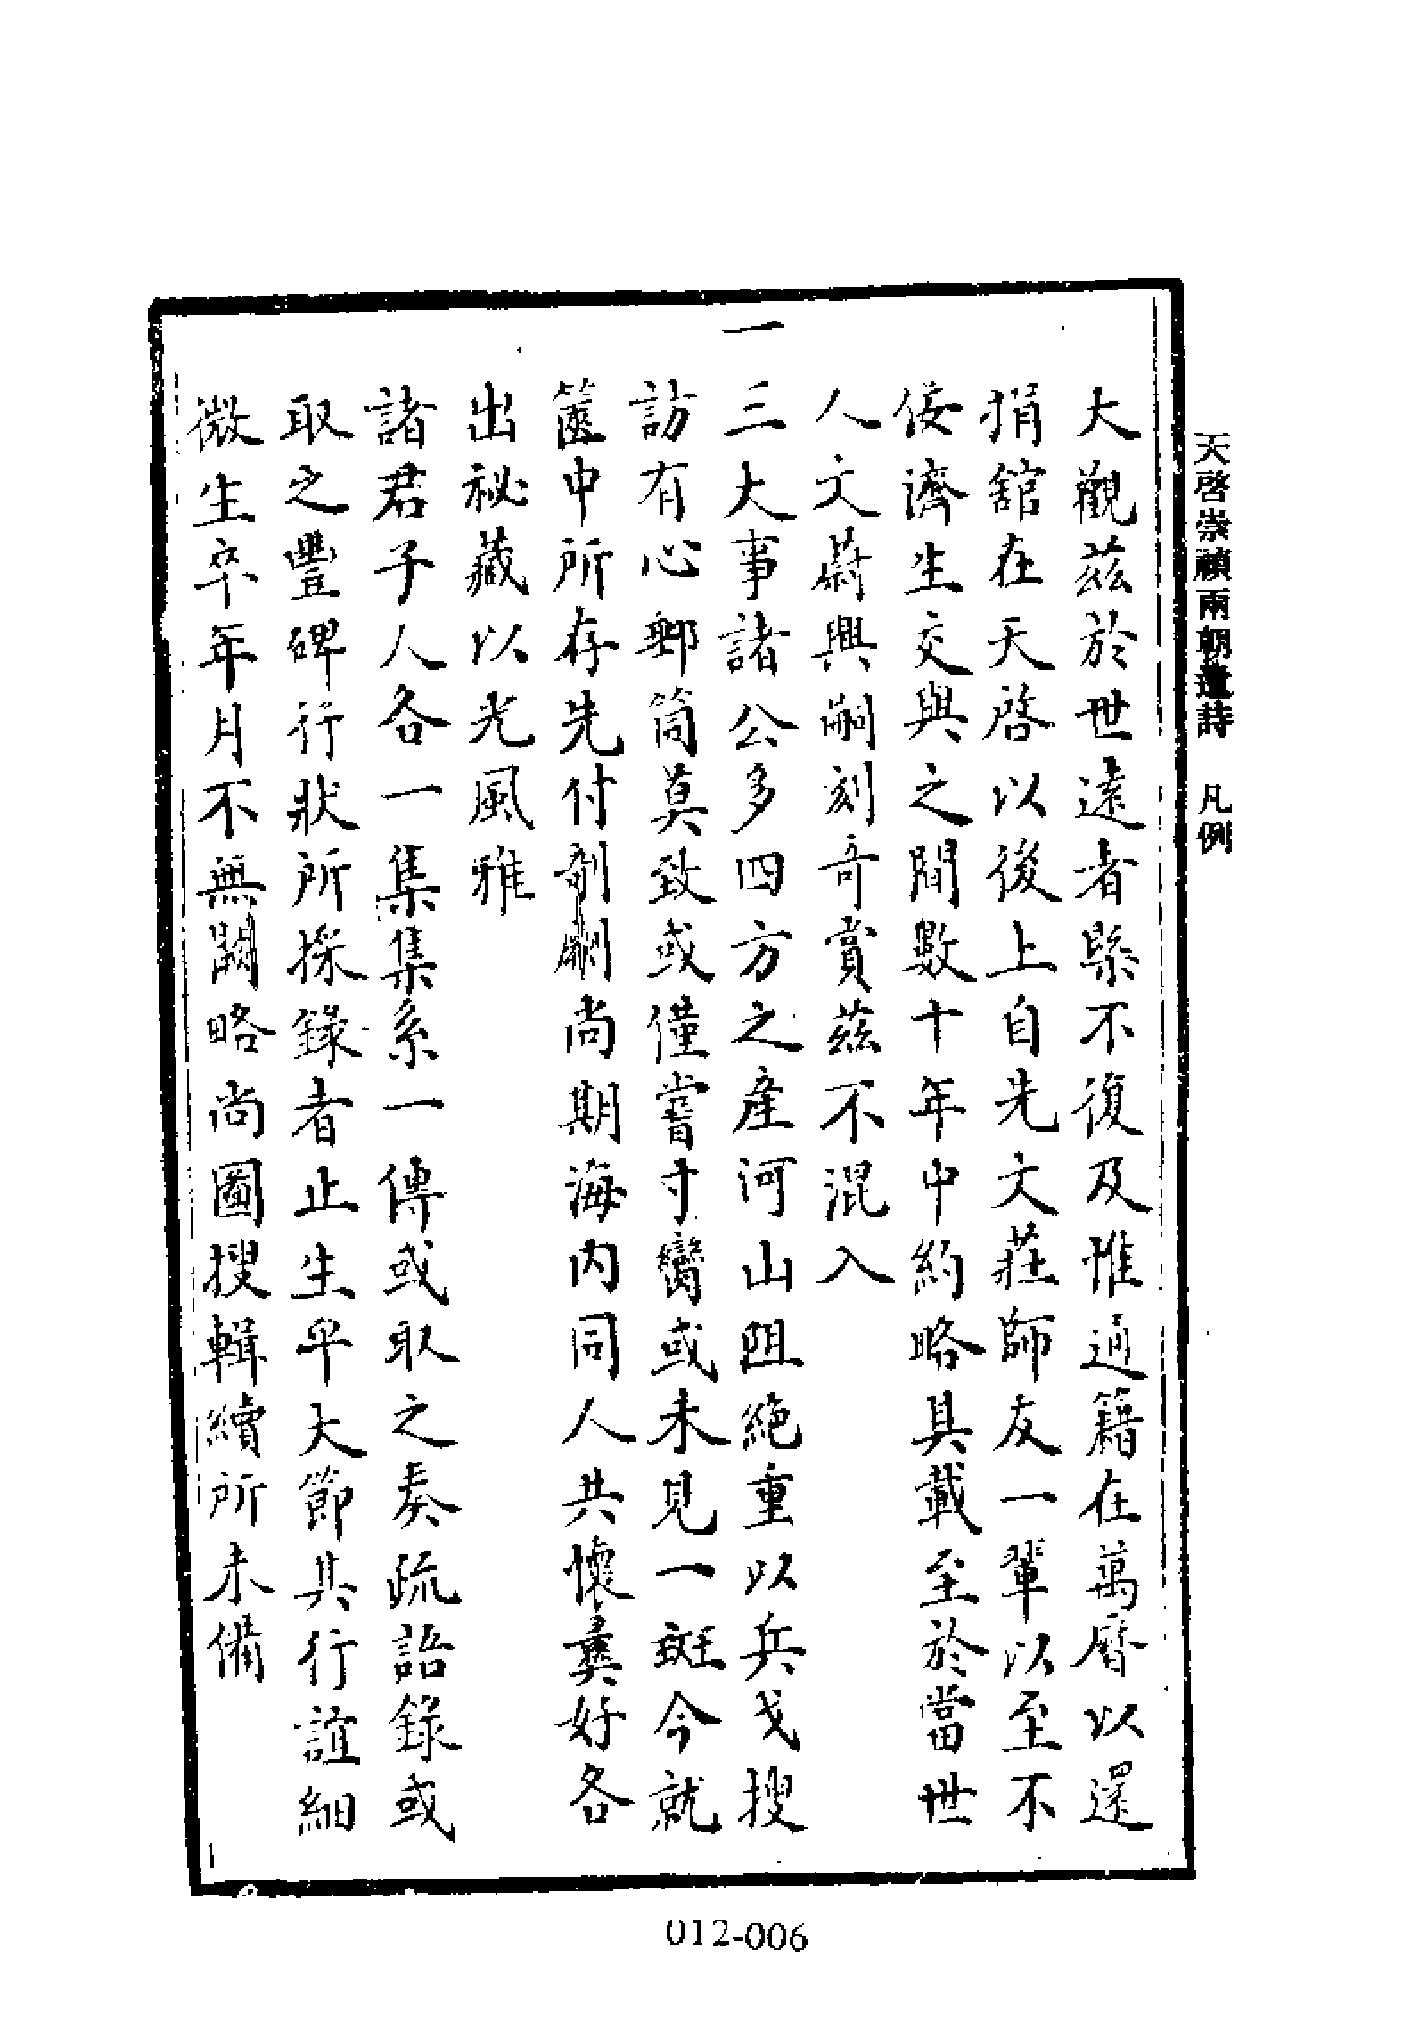 天啓崇禎兩朝遺詩 凡例
大觀茲於世遠者槩不復及惟通籍在萬曆以還
捐舘在天啓以後上自先文莊師友一輩以至不
佞濟生交與之間數十年中約略具載至於當世
人文蔚興嗣刻奇賞茲不混入
一三大事諸公多四方之產河山阻絶重以兵戈搜
訪有心郵筒莫致或僅嘗寸臠或未見一斑今就
篋中所存先付剞劂尚期海内同人共懷彞好各
出秘藏以光風雅
諸君子人各一集集系一傳或取之奏疏語錄或
取之豐碑行狀所採錄者止生平大節其行誼細
微生卒年月不無闕略尚圖搜輯續所未備
012-006